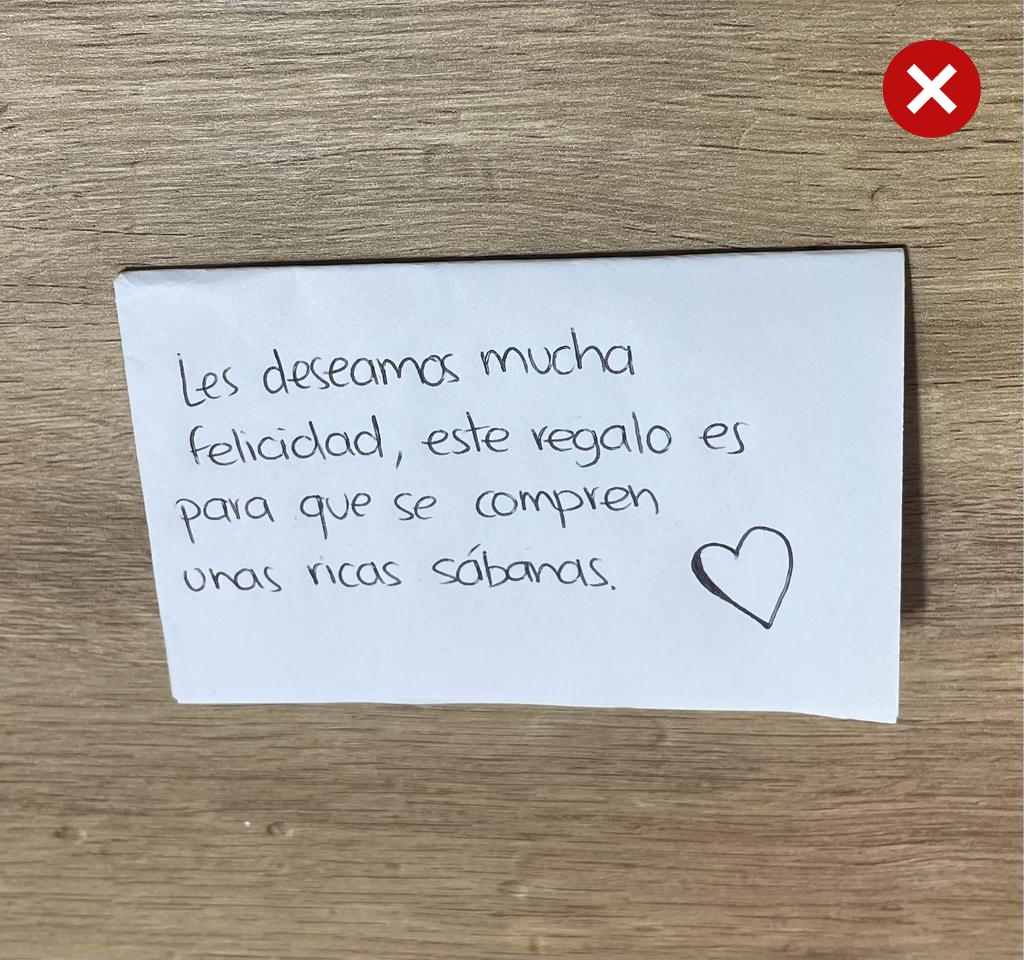 Les deseamos mucha
felicidad, este regalo es
para que se compren
unas ricas sábanas.